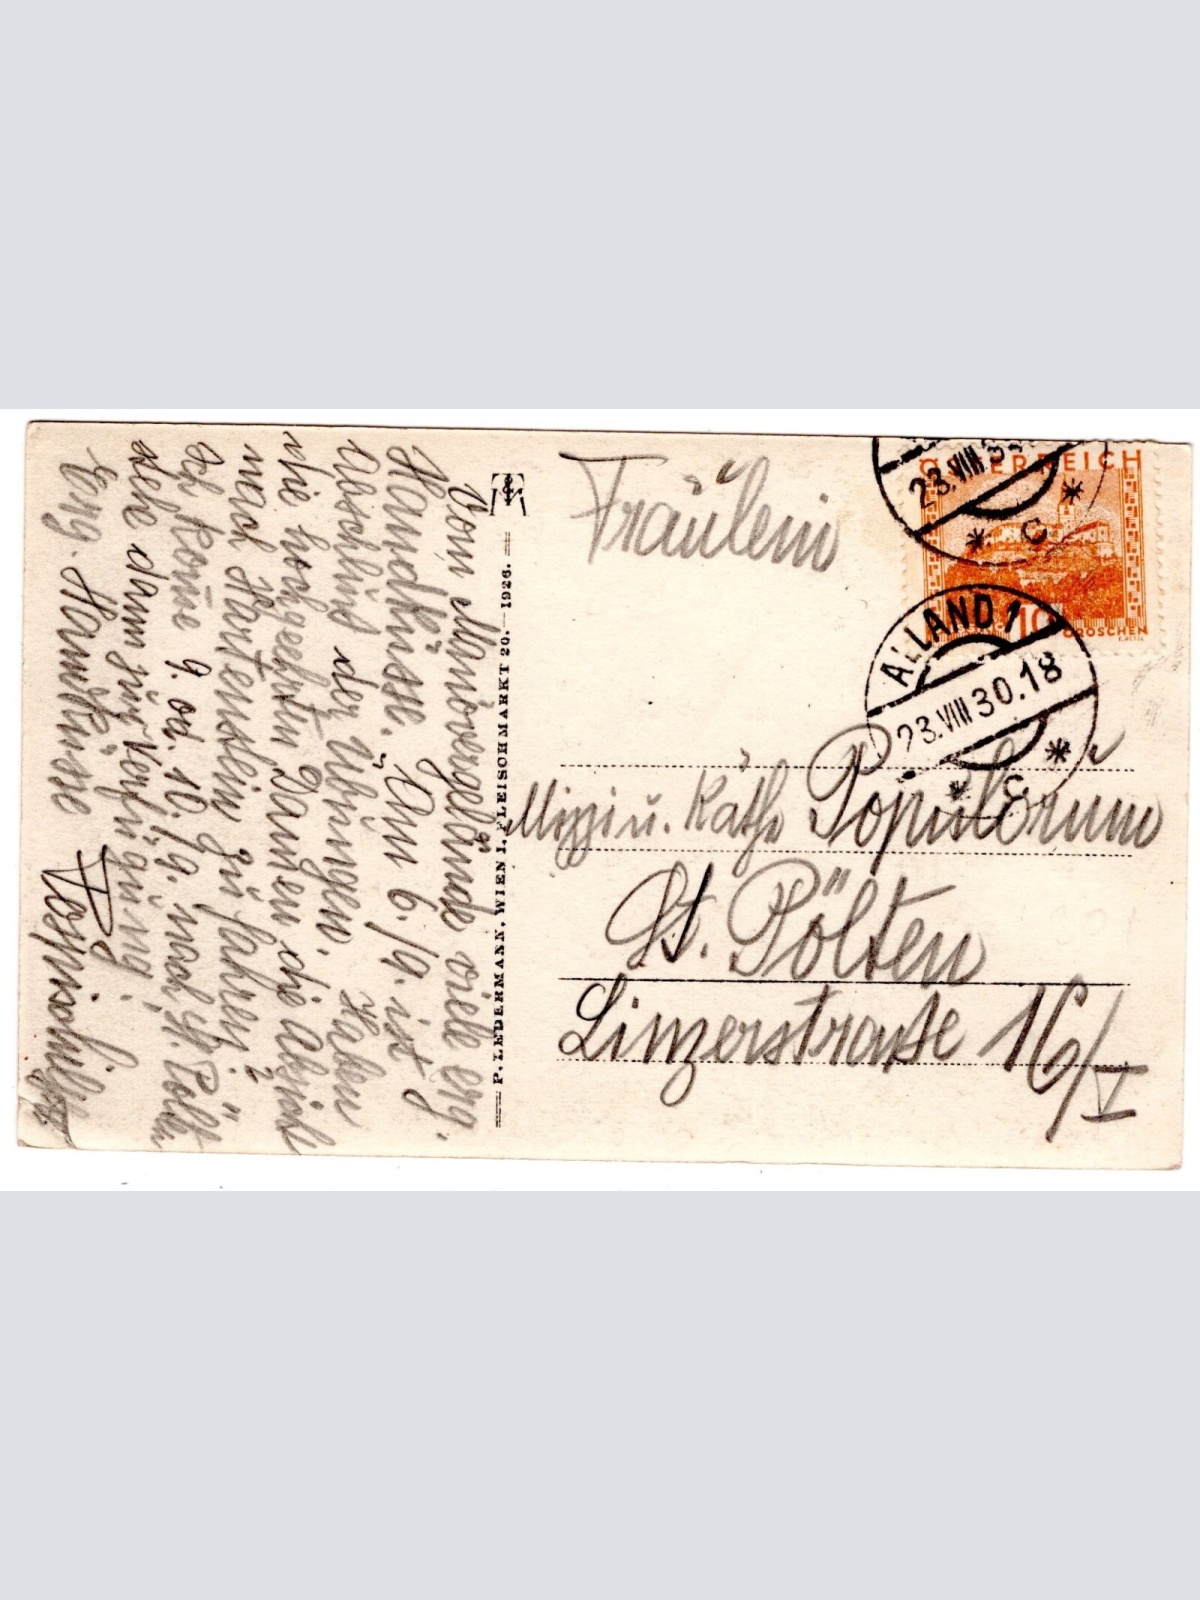 Vom Manövergelände viele erg.
Handküsse. Am 6./9. ist
Abschluß der Übungen. Haben
die hochgeehrten Damen die Absicht
nach Hartenstein zu fahren?
Ich kom̄e 9. od. 10./9. nach St. Pölt.
stehe dann zur Verfügung.
Erg. Handküsse
P. LEDERMANN, WIEN I, FLEISCHMARKT 20. — 1926.
Fräulein
Mizzi u. Käthe Populorum
St. Pölten
Linzerstraße 16/V
ÖSTERREICH
10 GROSCHEN
23.VIII 3
C
ALLAND 1
23.VIII 30.18
C